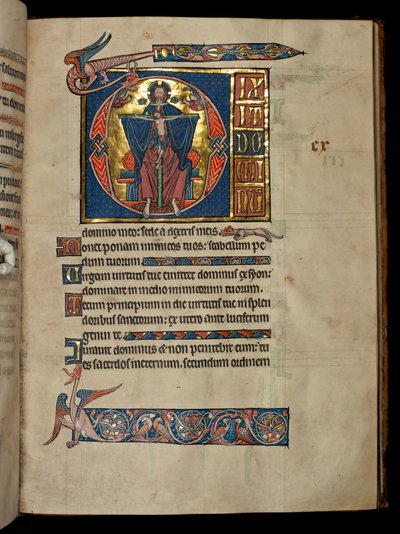 D
IX
IT
DO
MI
domino meo: sede a dextris meis.
Donec ponam inimicos tuos: scabellum pe
dum tuorum.
Virgam virtutis tue emittet dominus ex syon:
dominare in medio inimicorum tuorum.
Tecum principium in die virtutis tue in splen
doribus sanctorum: ex utero ante luciferum
genui te.
Iuravit dominus et non penitebit eum: tu
es sacerdos in eternum. secundum ordinem
cx